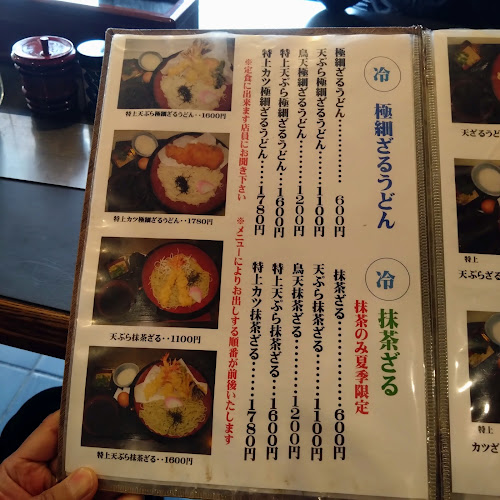 冷 極細ざるうどん
極細ざるうどん………… 600円
天ぷら極細ざるうどん……1100円
鳥天極細ざるうどん………1200円
特上天ぷら極細ざるうどん…1600円
特上カツ極細ざるうどん……1780円
※定食に出来ます店員にお聞き下さい
冷 抹茶ざる
抹茶のみ夏季限定
抹茶ざる………… 600円
天ぷら抹茶ざる………1100円
鳥天抹茶ざる………1200円
特上天ぷら抹茶ざる……1600円
特上カツ抹茶ざる………1780円
※メニューによりお出しする順番が前後いたします
特上天ぷら極細ざるうどん‥1600円
特上カツ極細ざるうどん‥1780円
天ぷら抹茶ざる‥1100円
特上天ぷら抹茶ざる‥1600円
天ざるうどん
特上
天ぷらざ
カツざ